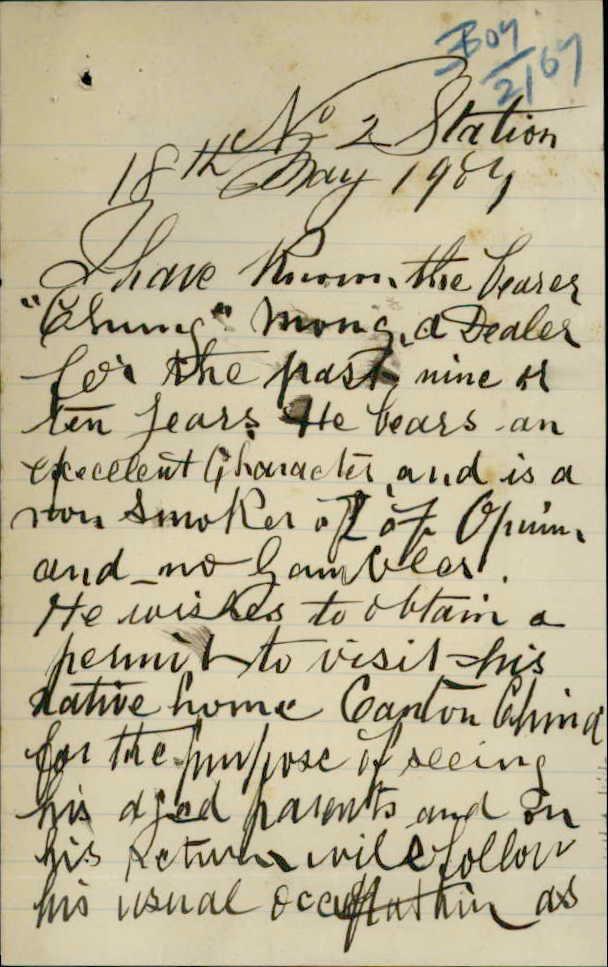 B04/2167
No 2 Station
18th May 1904
I have Known the bearer
"Chung" Mong, a Dealer
for the past nine or
ten years. He bears an
excecelent Character, and is a
non Smoker of of Opium,
and no Gambler.
He wishes to obtain a
permit to visit his
native home Canton China
for the purpose of seeing
his aged parents and on
his return will follow
his usual occupation as